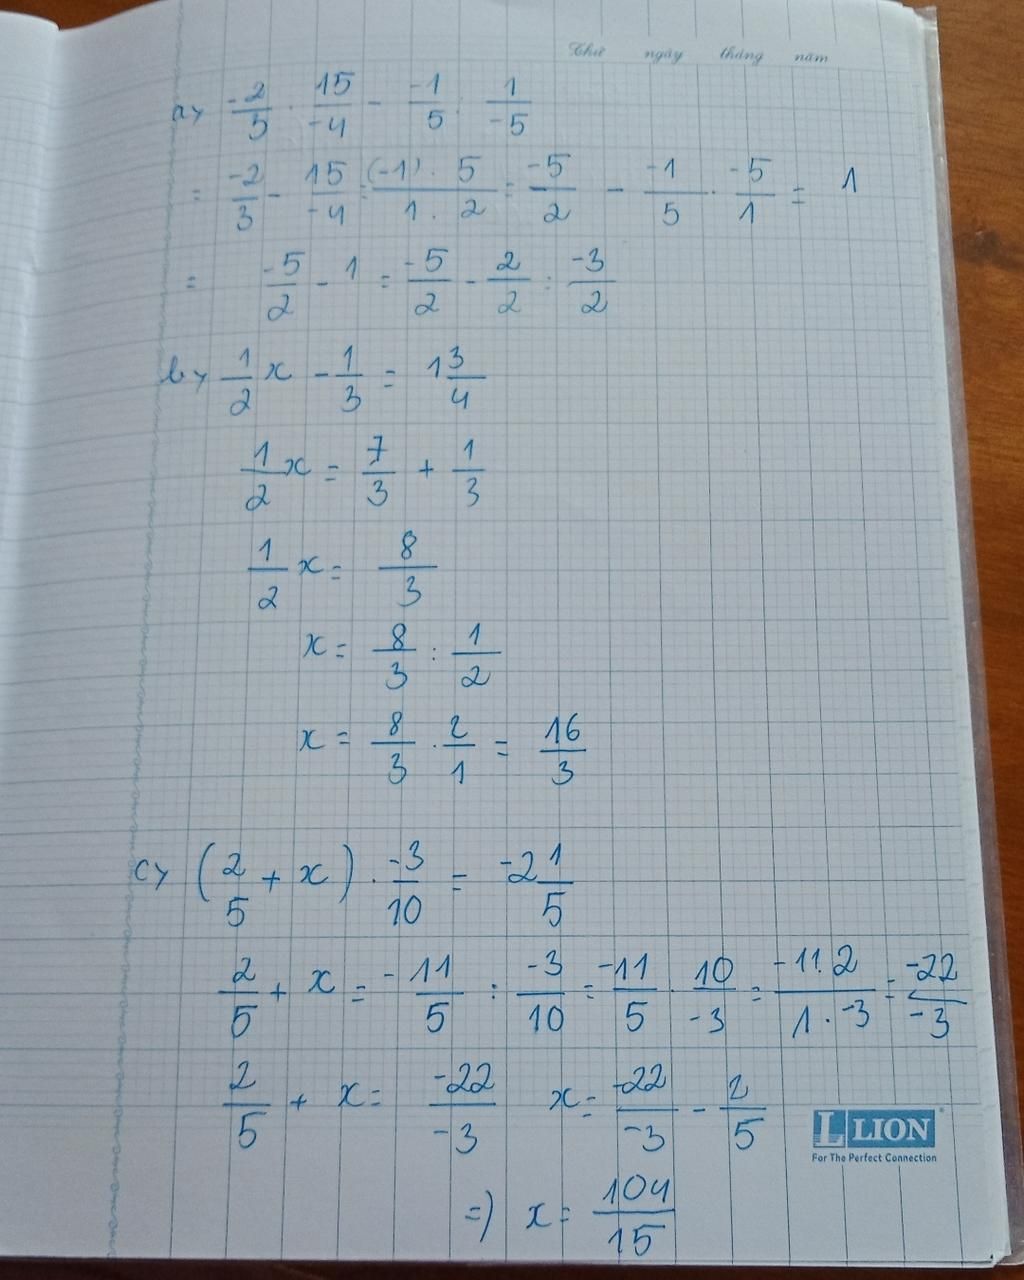 Thứ ngày tháng năm
a) -2/5 . 15/-4 - -1/5 : 1/-5
= -2/3 - 15/-4 = (-1) . 5 / 1 . 2 = -5/2 - -1/5 . -5/1 = 1
= -5/2 - 1 = -5/2 - 2/2 = -3/2
b) 1/2 x - 1/3 = 1 3/4
1/2 x = 7/3 + 1/3
1/2 x = 8/3
x = 8/3 : 1/2
x = 8/3 . 2/1 = 16/3
c) (2/5 + x) . -3/10 = -2 1/5
2/5 + x = -11/5 : -3/10 = -11/5 . 10/-3 = -11.2 / 1 . -3 = -22/-3
2/5 + x = -22/-3 x = -22/-3 - 2/5
=) x = 104/15
L LION
For The Perfect Connection